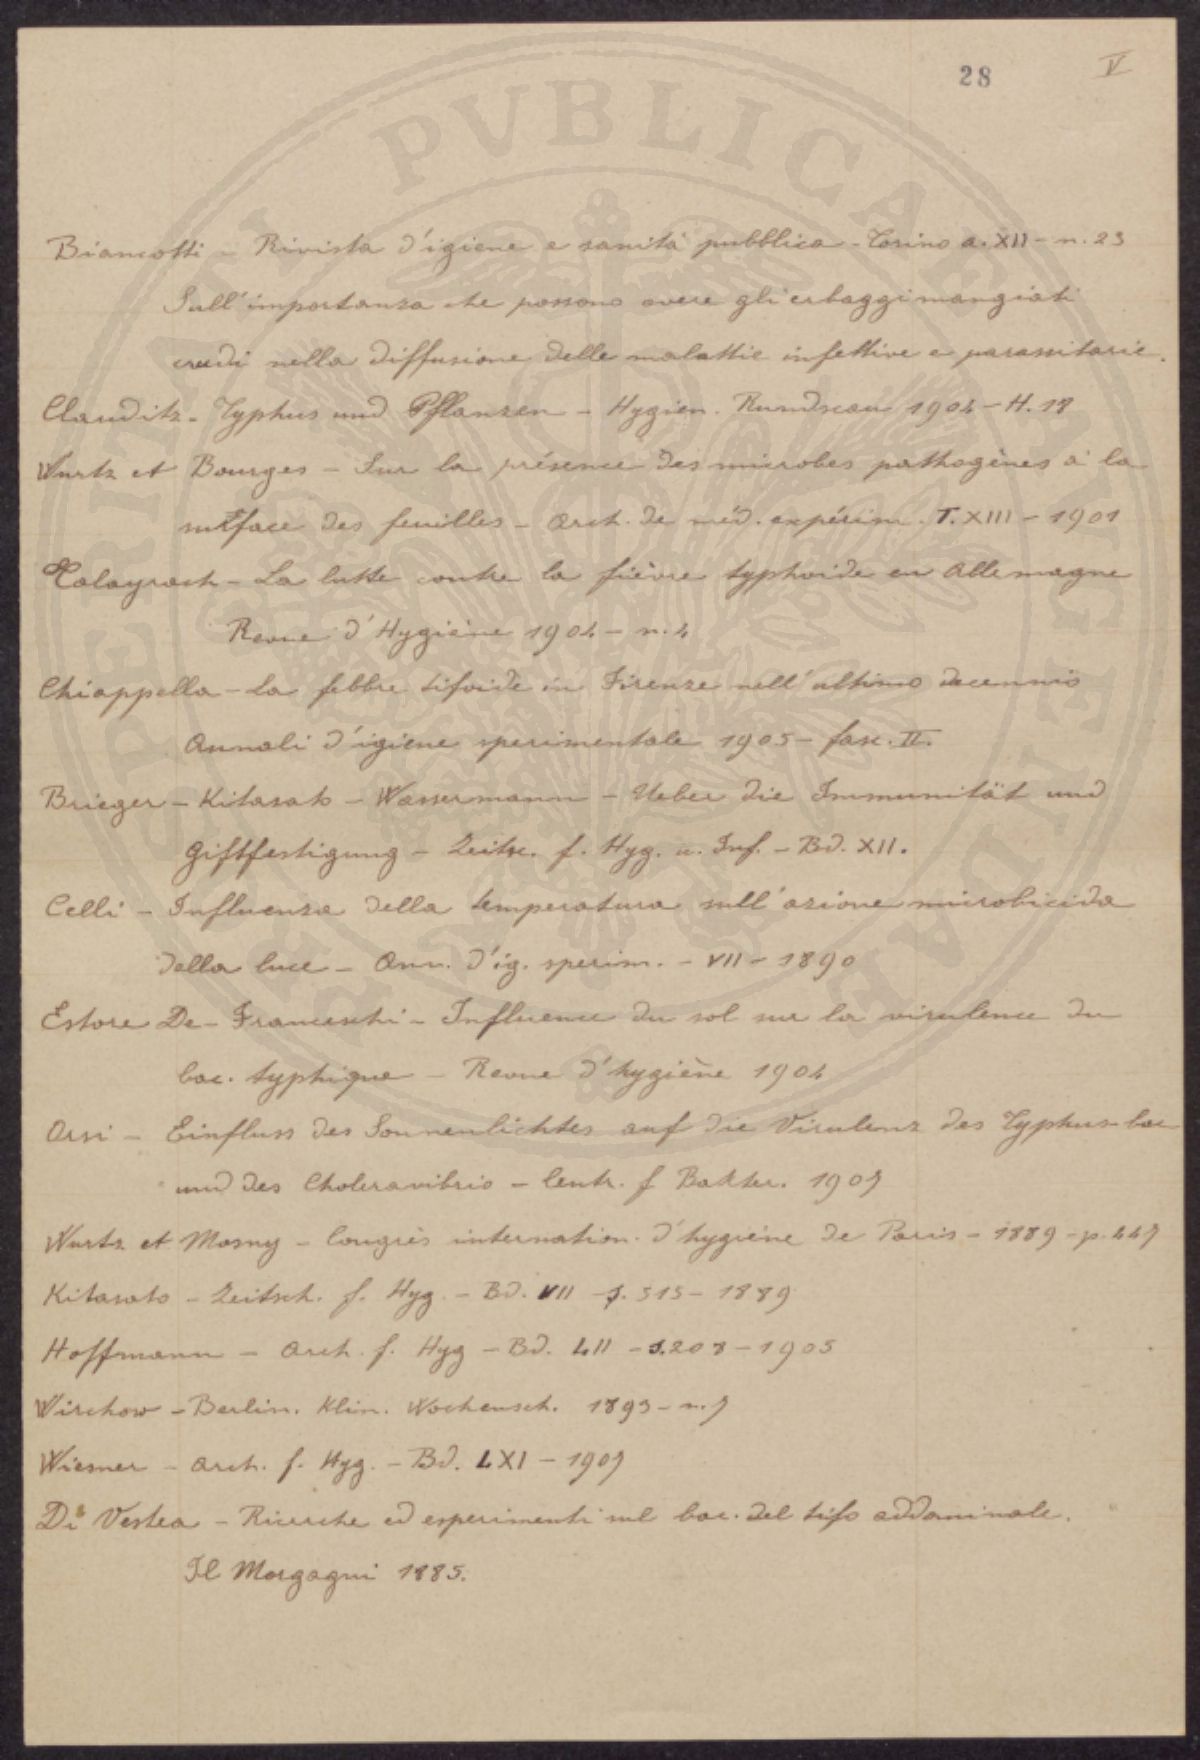 28 V
Biancotti - Rivista d'igiene e sanità pubblica - Torino a. XII - n. 23
Sull'importanza che possono avere gli erbaggi mangiati
crudi nella diffusione delle malattie infettive e parassitarie.
Clauditz - Typhus und Pflanzen - Hygien. Rundscau 1904 - H. 18
Wurtz et Bourges - Sur la présence des microbes pathogènes à la
surface des feuilles - Arch. de méd. expérim. T. XIII - 1901
Talayrach - La lutte contre la fièvre typhoide en Allemagne
Revue d'Hygiène 1904 - n. 4
Chiappella - La febbre tifoide in Firenze nell'ultimo decennio
Annali d'igiene sperimentale 1905 - fasc. II.
Brieger - Kitasato - Wassermann - Ueber die Immunität und
Giftfestigung - Zeitsc. f. Hyg. u. Inf. - Bd. XII.
Celli - Influenza della temperatura sull'azione microbicida
della luce - Ann. d'ig. sperim. - VII - 1890
Estore De-Franceschi - Influence du sol sur la virulence du
bac. typhique - Revue d'hygiène 1904
Orsi - Einfluss des Sonnenlichtes auf die Virulenz des Typhus-bac
und des Choleravibrio - Centr. f Bakter. 1907
Wurtz et Mosny - Congrès internation. d'hygiène de Paris - 1889 - p. 447
Kitasato - Zeitsch. f. Hyg. - Bd. VII - S. 515 - 1889
Hoffmann - Arch. f. Hyg - Bd. LII - S. 208 - 1905
Wirchow - Berlin. Klin. Wochensch. 1893 - n. 7
Wiesner - Arch. f. Hyg. - Bd. LXI - 1907
Di Vestea - Ricerche ed esperimenti sul bac. del tifo addominale.
Il Morgagni 1885.